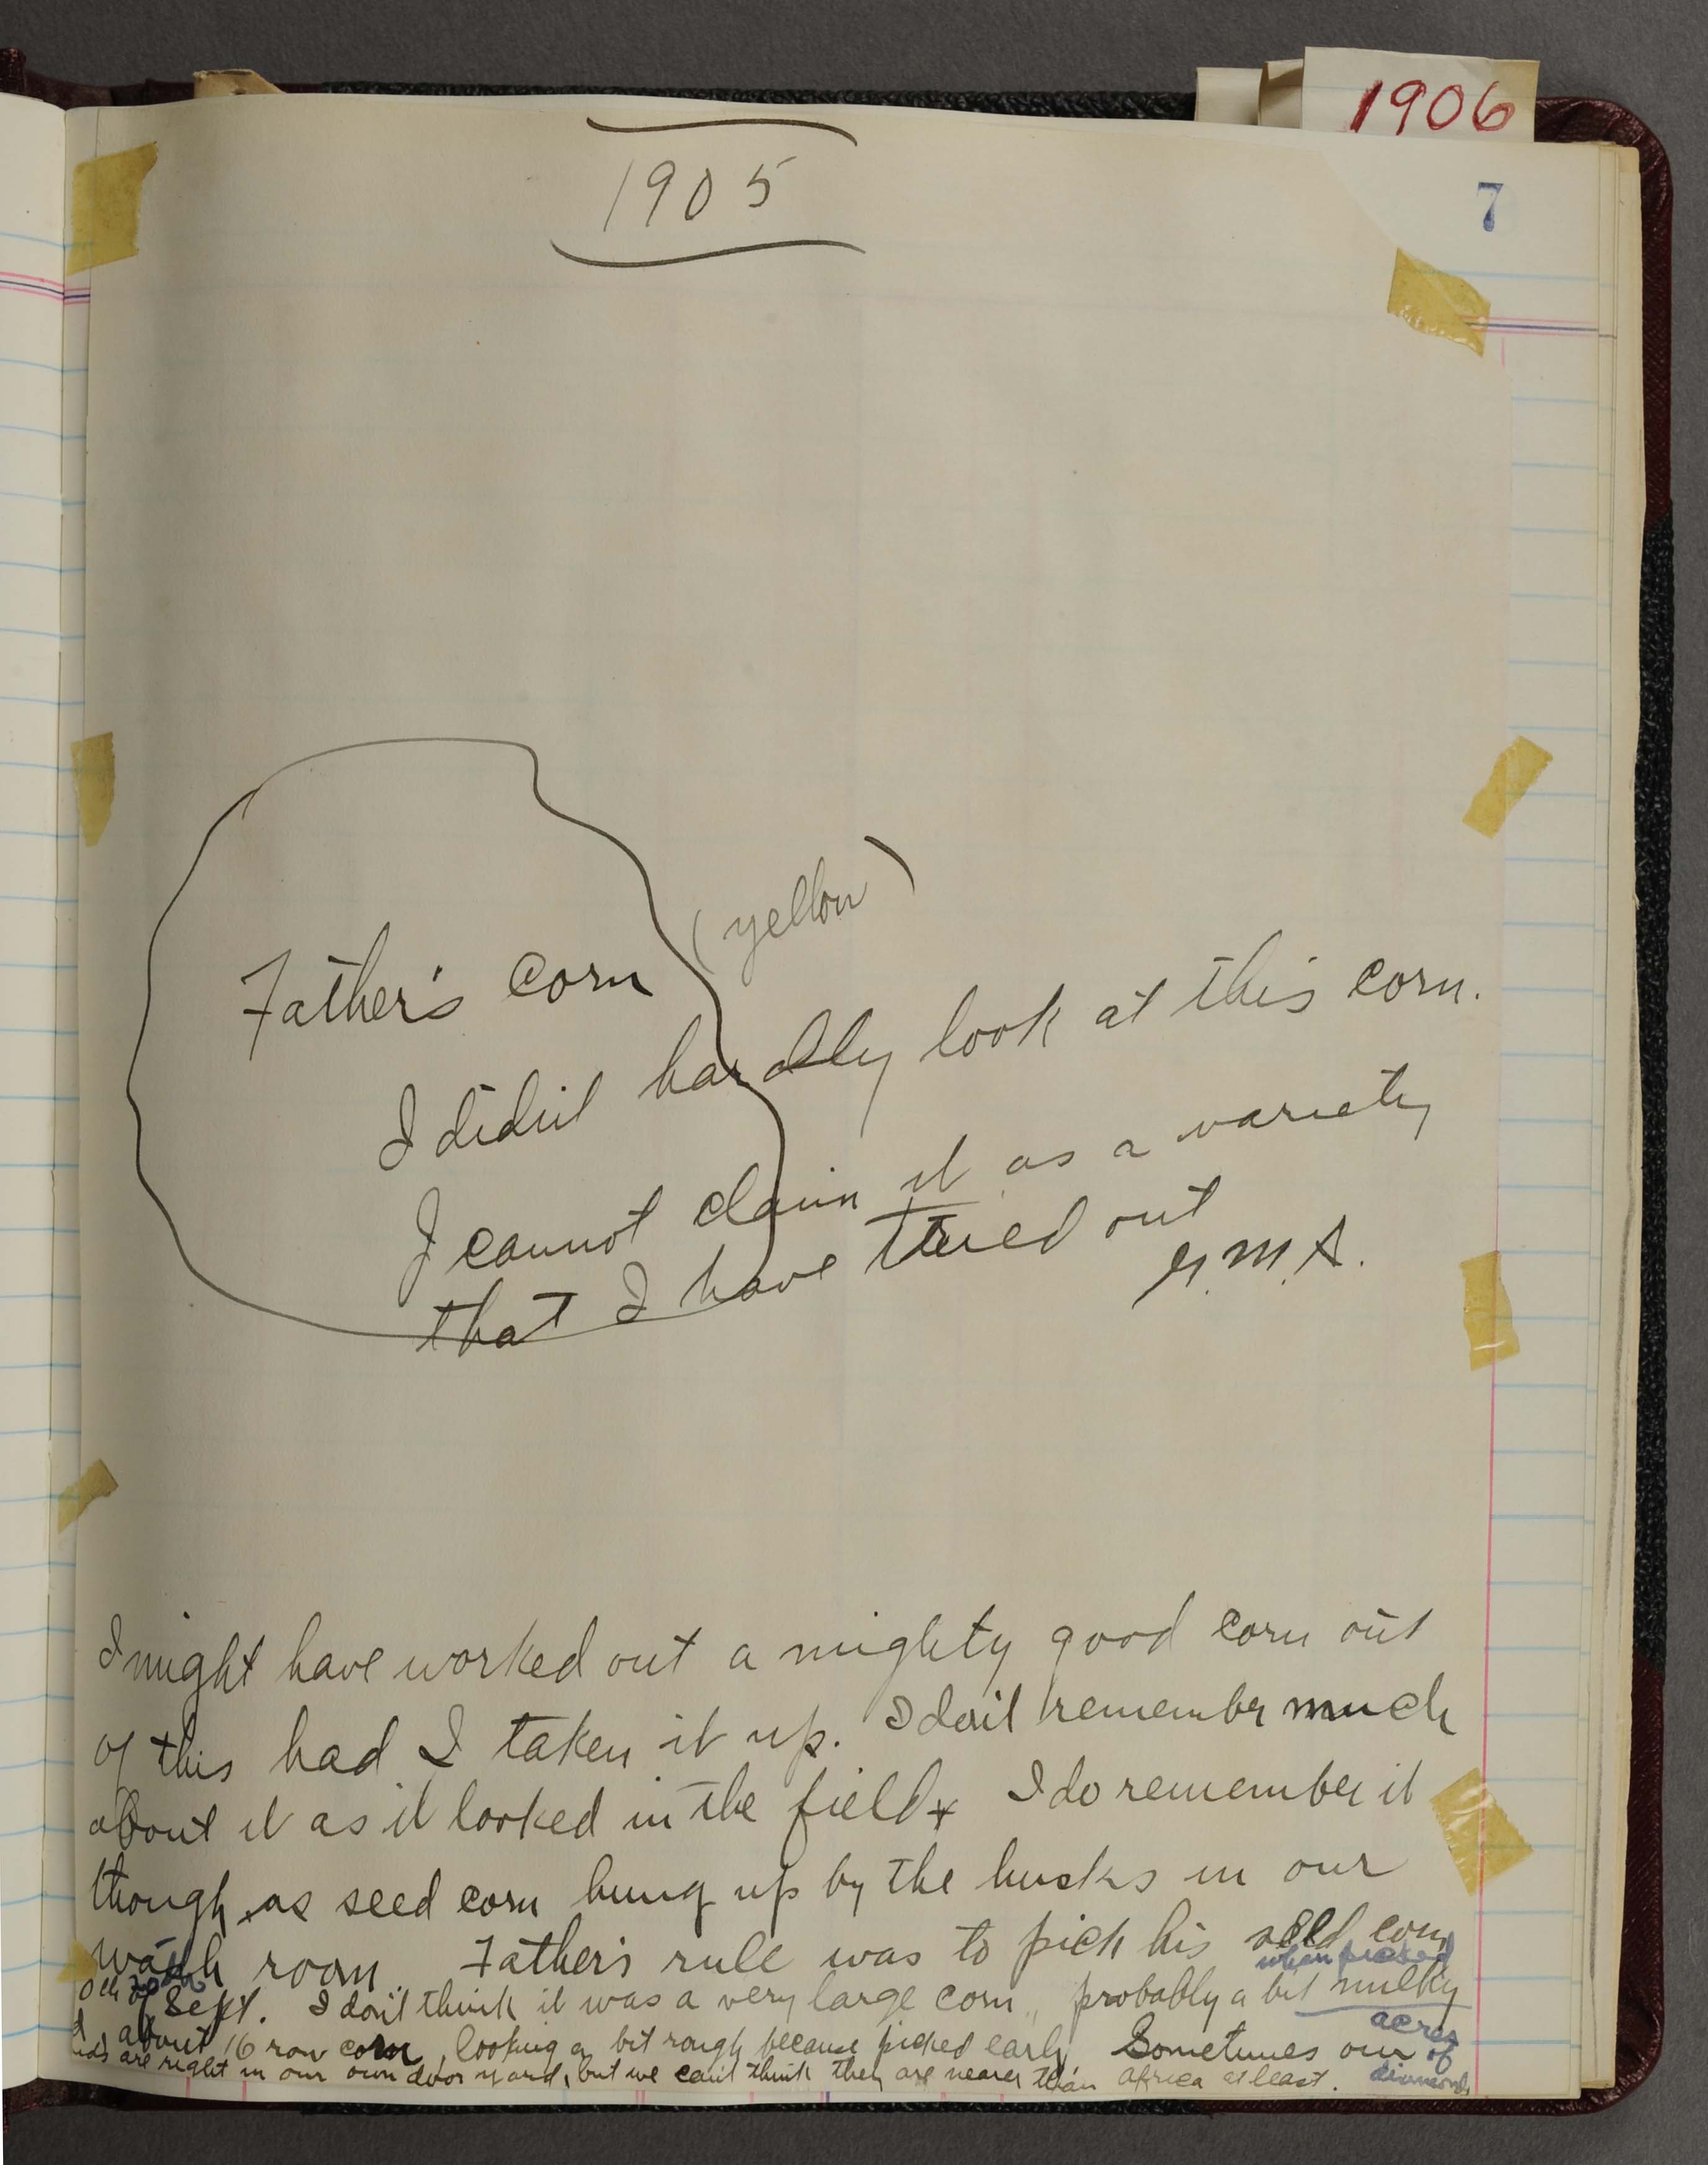 1906
1905
7
(yellow)
Father's corn
I didn't hardly look at this corn.
I cannot claim it as a variety
that I have tried out
M. A.
I might have worked out a mighty good corn out
of this had I taken it up. I don't remember much
about it as it looked in the field + I do remember it
though, as seed corn hung up by the husks in our
wash room. Father's rule was to pick his seed corn
when picked
Sept. I don't think it was a very large corn, probably a bit milky
about 16 row corn, looking a bit rough because picked early Sometimes our acres of
are right in our own door yard, but we can't think they are nearer than Africa at least. diamonds